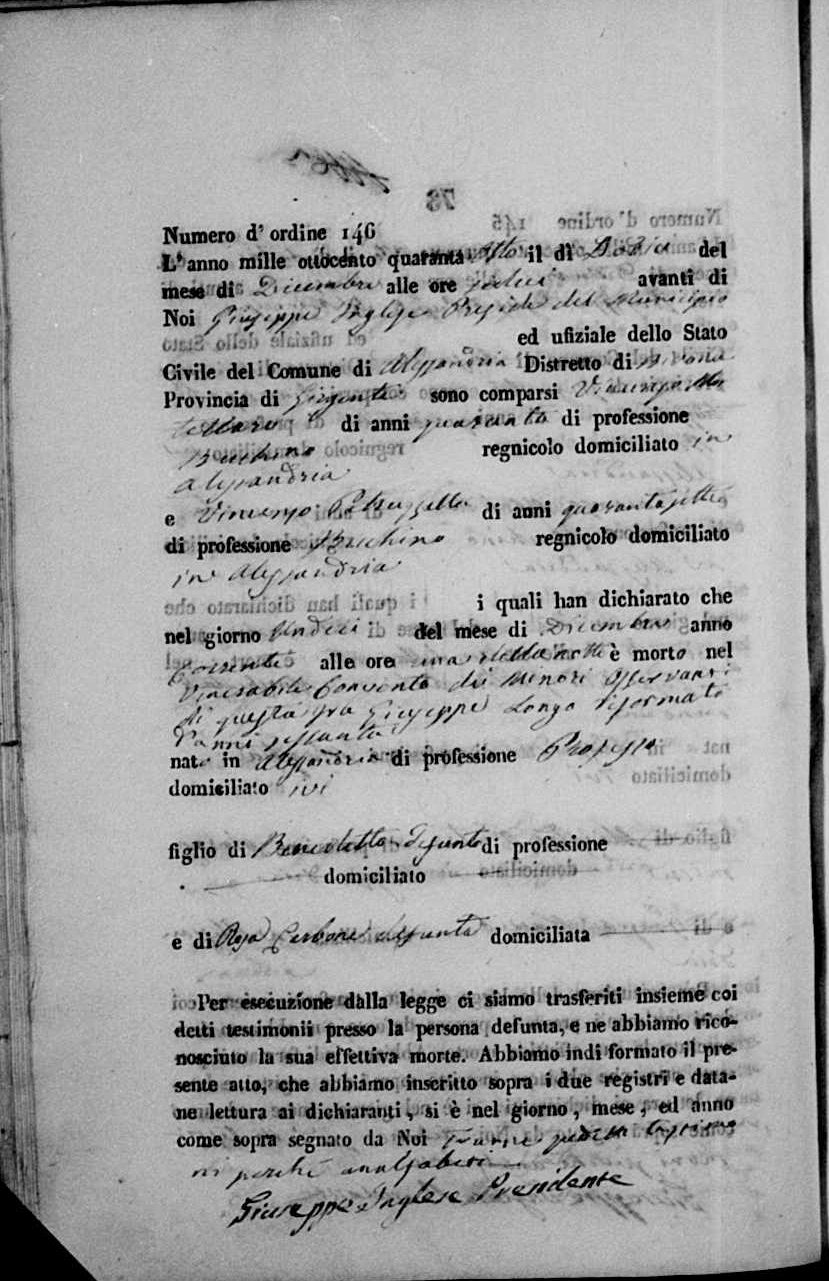 78
Numero d' ordine 146
L'anno mille ottocento quaranta otto il dì Dodici del
mese di Dicembre alle ore sedici avanti di
Noi Giuseppe Inglese Preside del Municipio
ed ufiziale dello Stato
Civile del Comune di Alessandria Distretto di Bivona
Provincia di Girgenti sono comparsi Vincenzo
di anni quaranta di professione
Becchino regnicolo domiciliato in
Alessandria
e Vincenzo Petruzzella di anni quarantasette
di professione Becchino regnicolo domiciliato
in Alessandria
i quali han dichiarato che
nel giorno Undeci del mese di Dicembre anno
Corrente alle ore una della notte è morto nel
Venerabile Convento dei Minori Osservanti
di questa fra Giuseppe Longo riformato
d'anni sessanta
nato in Alessandria di professione Professo
domiciliato ivi
figlio di Benedetto defunto di professione
domiciliato
e di Rosa Carbone defunta domiciliata
Per esecuzione dalla legge ci siamo trasferiti insieme coi
detti testimonii presso la persona defunta, e ne abbiamo rico-
nosciuto la sua effettiva morte. Abbiamo indi formato il pre-
sente atto, che abbiamo inscritto sopra i due registri e data-
ne lettura ai dichiaranti, si è nel giorno, mese, ed anno
come sopra segnato da Noi
ni perché analfabeti
Giuseppe Inglese Presidente